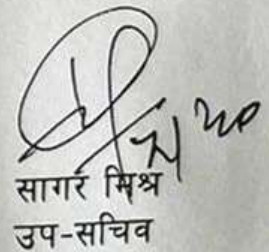 सागर मिश्र
उप-सचिव